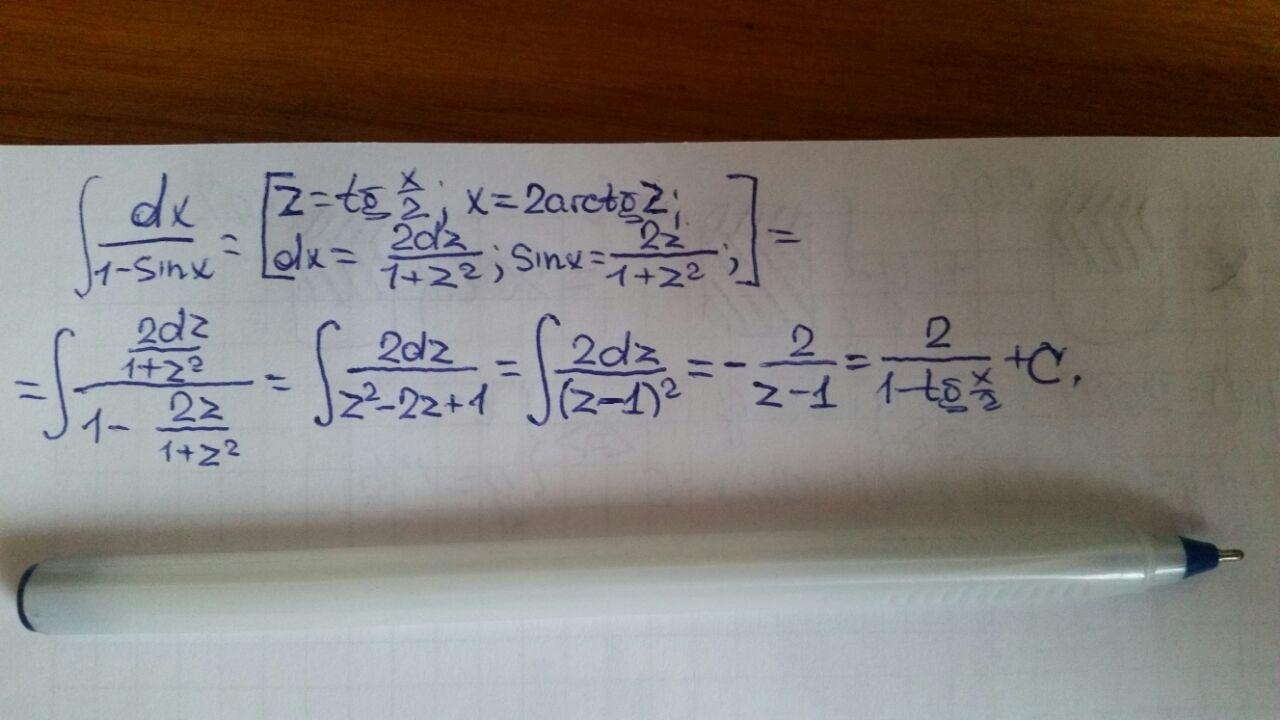 ∫ dx/(1-sinx) = [z=tg x/2; x=2arctgz;
dx= 2dz/(1+z²); sinx= 2z/(1+z²);] =
= ∫ (2dz/(1+z²))/(1- 2z/(1+z²)) = ∫ 2dz/(z²-2z+1) = ∫ 2dz/(z-1)² = - 2/(z-1) = 2/(1-tg x/2) +C.